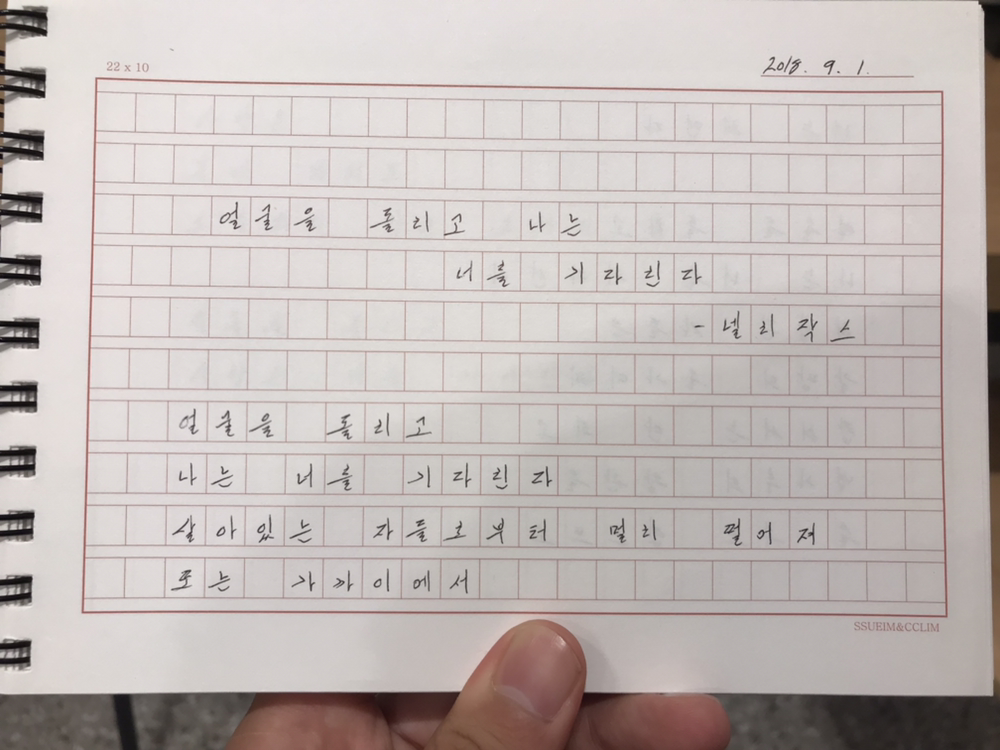 22 x 10
2018. 9. 1.
얼굴을 돌리고 나는
너를 기다린다
- 넬리 작스
얼굴을 돌리고
나는 너를 기다린다
살아있는 자들로부터 멀리 떨어져
또는 가까이에서
SSUEIM&CCLIM